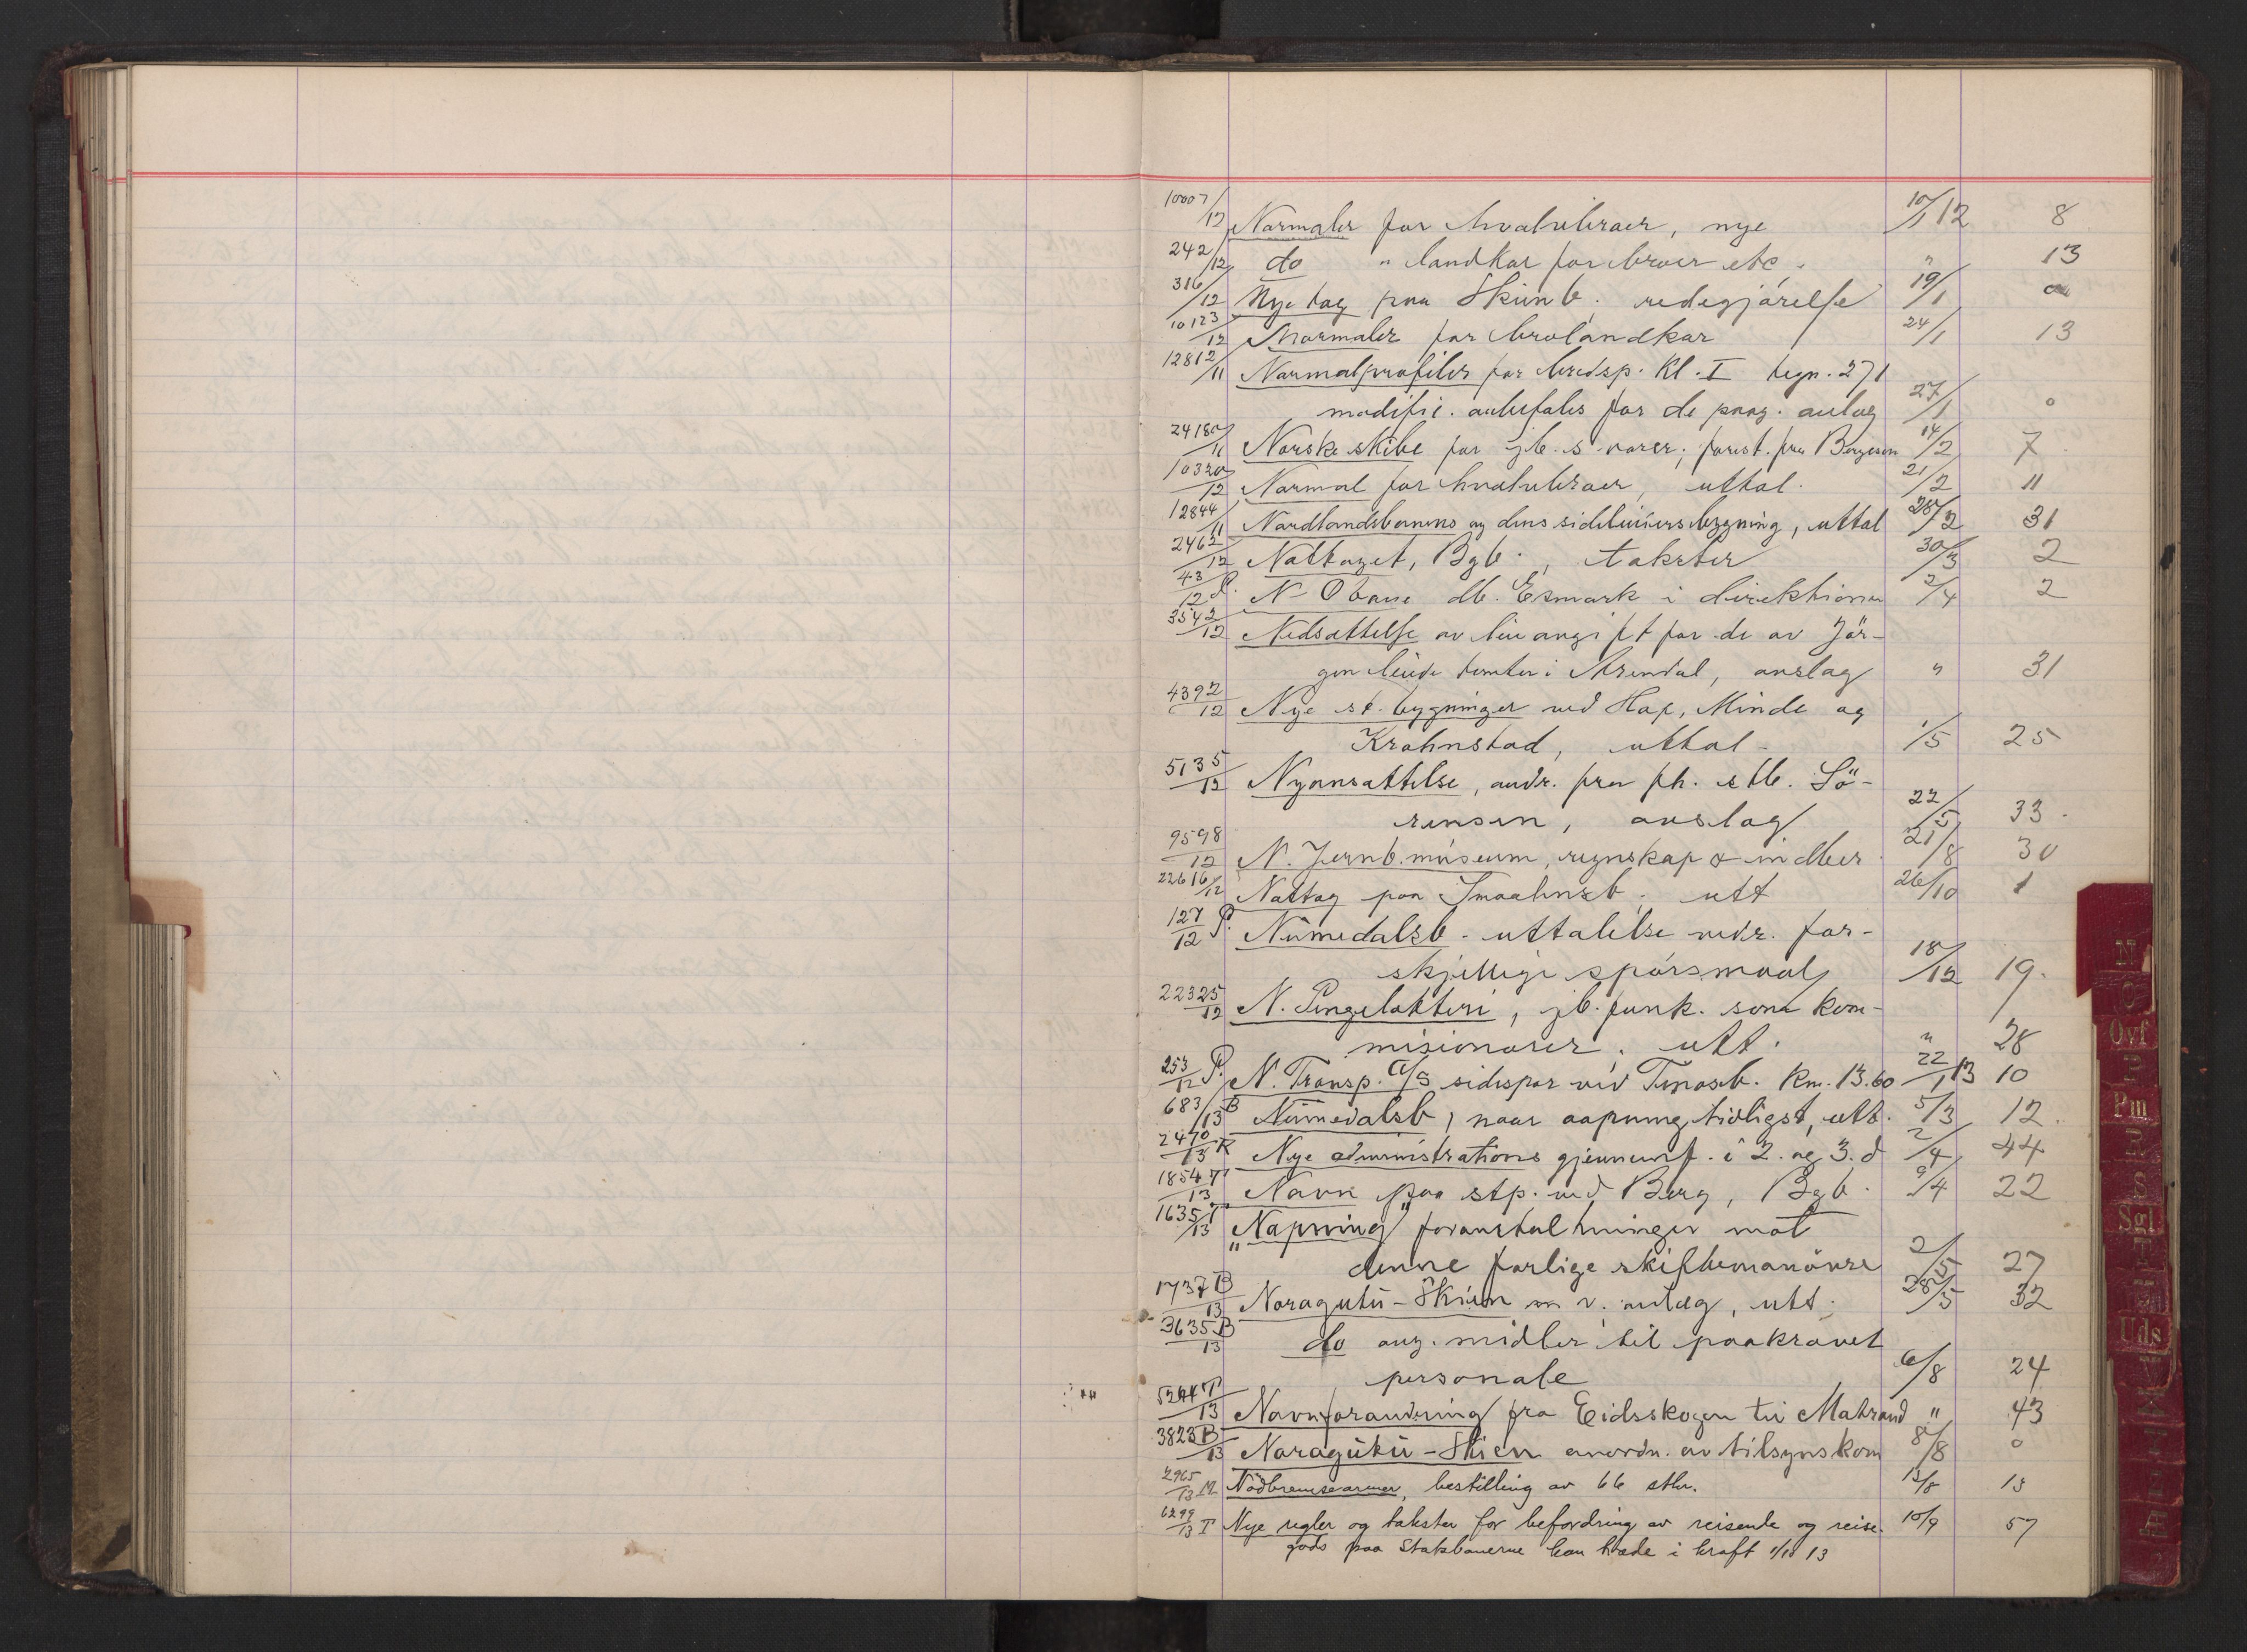 10007/12 Normaler for hvalvbroer, nye 10/1 12 8
242/12 do " landkar for broer etc. " 13
316/12 Nye tog paa Skinb. redegjörelse 19/1
10123/12 Normaler for brolandkar 24/1 13
12812/11 Normalprofiler for bredsp. Kl. I tegn. 271
modific. anbefales for de paag. anlæg 27/1 0
24180/11 Norske skibe for jb.s varer; forest. fra Bergesen 14/2 7
10320/12 Normal for hvalvbroer, uttal. 21/2 11
12844/11 Nordlandsbanens og dens sideliniers bygning, uttal 28/2 31
2462/12 Nattoget, Bgb., takster 30/3 2
43/12 P. N-Obane db. Esmark i direktionen 2/4 2
3542/12 Nedsættelse av leieavgift for de av Jör-
gen leiede tomter i Arendal, avslag " 31
4392/12 Nye st. bygninger ved Hop, Minde og
Krohnstad, uttal- 1/5 25
5135/12 Nyansættelse, andr. fra fh. stb. Sö-
rensen, avslag 22/5 33.
9598/12 N. Jernb.museum, regnskap & indber. 21/8 30
22616/12 Nattog paa Smaalensb. utt 26/10 1
127/12 P. Numedalsb. uttalelse vedr. for-
skjellige spörsmaal 18/12 19.
22325/12 N. Pengelotteri, jb. funk. som kom-
misionærer. utt. " 28
253/12 P. N. Transp. A/S sidespor ved Tinosb. Km. 13.60 22/1 13 10
683/13 B Numedalsb, naar aapning tidligst, utt. 5/3 12.
2470/13 K Nye administrations gjennemf. i 2. og 3. d 2/4 44
1854 T/13 Navn paa stp. ved Berg, Bgb. 9/4 22
1635 T/13 "Napning" foranstaltninger mot
denne farlige skiftemanövre 2/5 27
1737 B/13 Noragutu-Skien m v. anlæg, utt. 28/5 32
3635 B/13 do ang. midler til paakrævet
personale 6/8 24
5244 T/13 Navnforandring fra Eidsskogen til Matrand " 43
3823 B/13 Noragutu-Skien anordn. av tilsynskom 8/8 0
2965/13 M Nödbremsearmer, bestilling av 66 stkr. 13/8 13
6299/13 T Nye regler og takster for befordring av reisende og reise- 10/9 57
gods paa Statsbanerne kan træde i kraft 1/10 13
N
Ovf
P
Pm
R
S
Sgl
T
Uds